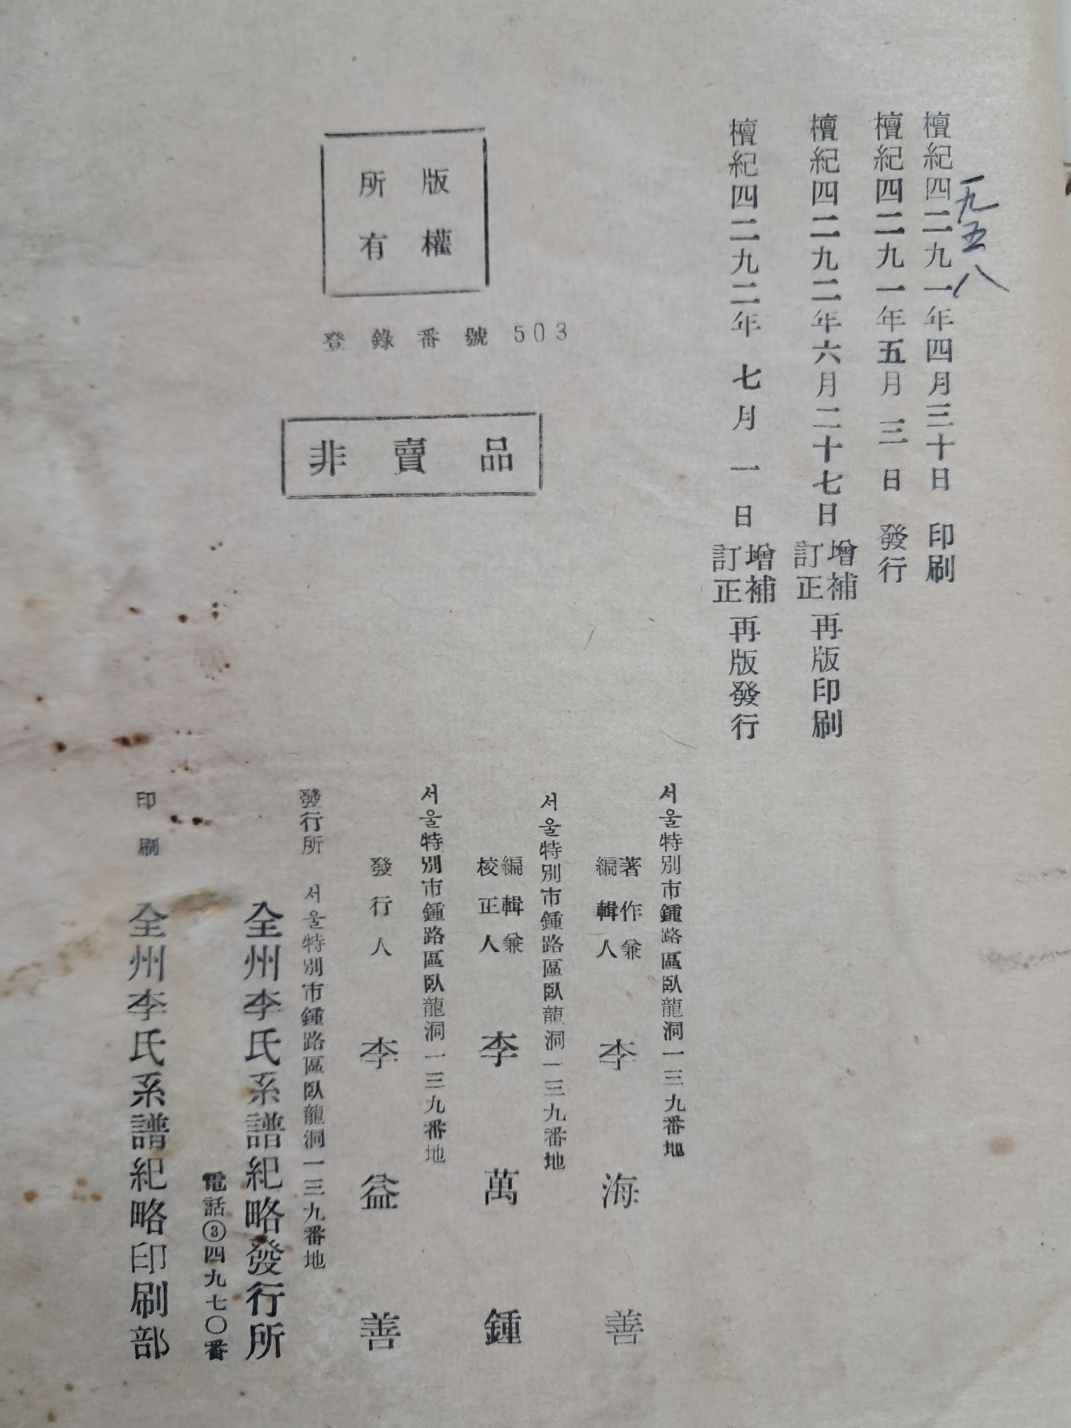 檀紀四二九一年四月三十日 印刷
一九五八
檀紀四二九一年五月三日 發行
檀紀四二九二年六月二十七日 增補訂正再版印刷
檀紀四二九二年七月一日 增補訂正再版發行
版權所有
登錄番號 503
非賣品
서울特別市鍾路區臥龍洞一三九番地
著作兼編輯人 李海善
서울特別市鍾路區臥龍洞一三九番地
編輯兼校正人 李萬鍾
서울特別市鍾路區臥龍洞一三九番地
發行人 李益善
發行所 서울特別市鍾路區臥龍洞一三九番地
全州李氏系譜紀略發行所
電話③四九七〇番
印刷 全州李氏系譜紀略印刷部